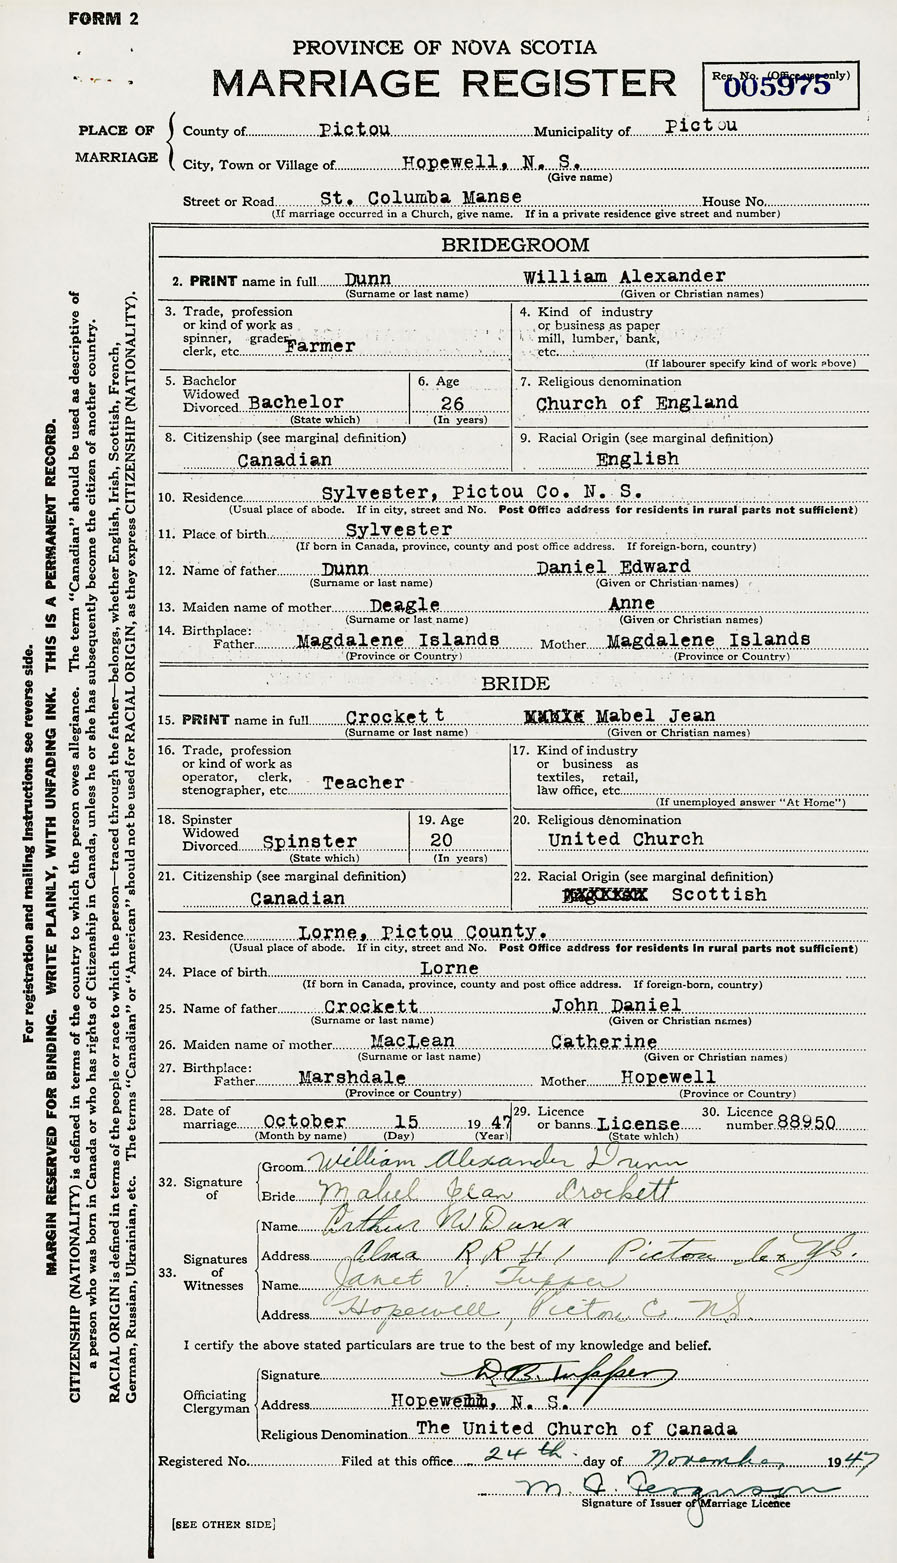 FORM 2
PROVINCE OF NOVA SCOTIA
MARRIAGE REGISTER
Reg. No. (Office use only)
005975
PLACE OF MARRIAGE
County of Pictou Municipality of Pictou
City, Town or Village of Hopewell, N. S.
(Give name)
Street or Road St. Columba Manse House No.
(If marriage occurred in a Church, give name. If in a private residence give street and number)
BRIDEGROOM
2. PRINT name in full Dunn William Alexander
(Surname or last name) (Given or Christian names)
3. Trade, profession or kind of work as spinner, grader, clerk, etc. Farmer
4. Kind of industry or business as paper mill, lumber, bank, etc.
(If labourer specify kind of work above)
5. Bachelor Widowed Divorced Bachelor
(State which)
6. Age 26
(In years)
7. Religious denomination
Church of England
8. Citizenship (see marginal definition)
Canadian
9. Racial Origin (see marginal definition)
English
10. Residence Sylvester, Pictou Co. N. S.
(Usual place of abode. If in city, street and No. Post Office address for residents in rural parts not sufficient)
11. Place of birth Sylvester
(If born in Canada, province, county and post office address. If foreign-born, country)
12. Name of father Dunn Daniel Edward
(Surname or last name) (Given or Christian names)
13. Maiden name of mother Deagle Anne
(Surname or last name) (Given or Christian names)
14. Birthplace: Father Magdalene Islands Mother Magdalene Islands
(Province or Country) (Province or Country)
BRIDE
15. PRINT name in full Crockett Mabel Jean
(Surname or last name) (Given or Christian names)
16. Trade, profession or kind of work as operator, clerk, stenographer, etc. Teacher
17. Kind of industry or business as textiles, retail, law office, etc.
(If unemployed answer "At Home")
18. Spinster Widowed Divorced Spinster
(State which)
19. Age 20
(In years)
20. Religious denomination
United Church
21. Citizenship (see marginal definition)
Canadian
22. Racial Origin (see marginal definition)
Scottish
23. Residence Lorne, Pictou County.
(Usual place of abode. If in city, street and No. Post Office address for residents in rural parts not sufficient)
24. Place of birth Lorne
(If born in Canada, province, county and post office address. If foreign-born, country)
25. Name of father Crockett John Daniel
(Surname or last name) (Given or Christian names)
26. Maiden name of mother MacLean Catherine
(Surname or last name) (Given or Christian names)
27. Birthplace: Father Marshdale Mother Hopewell
(Province or Country) (Province or Country)
28. Date of marriage October 15 1947
(Month by name) (Day) (Year)
29. Licence or banns License
(State which)
30. Licence number 88950
32. Signature of
Groom William Alexander Dunn
Bride Mabel Jean Crockett
33. Signatures of Witnesses
Name Arthur W Dunn
Address Alma R R # 1 Pictou Co N.S.
Name Janet V. Tupper
Address Hopewell, Pictou Co. N.S.
I certify the above stated particulars are true to the best of my knowledge and belief.
Officiating Clergyman
Signature D. B. Tupper
Address Hopewell, N. S.
Religious Denomination The United Church of Canada
Registered No. Filed at this office 24th day of November 1947
M. F. Ferguson
Signature of Issuer of Marriage Licence
[SEE OTHER SIDE]
For registration and mailing instructions see reverse side.
MARGIN RESERVED FOR BINDING. WRITE PLAINLY, WITH UNFADING INK. THIS IS A PERMANENT RECORD.
CITIZENSHIP (NATIONALITY) is defined in terms of the country to which the person owes allegiance. The term "Canadian" should be used as descriptive of
a person who was born in Canada or who has rights of Citizenship in Canada, unless he or she has subsequently become the citizen of another country.
RACIAL ORIGIN is defined in terms of the people or race to which the person—traced through the father—belongs, whether English, Irish, Scottish, French,
German, Russian, Ukrainian, etc. The terms "Canadian" or "American" should not be used for RACIAL ORIGIN, as they express CITIZENSHIP (NATIONALITY).